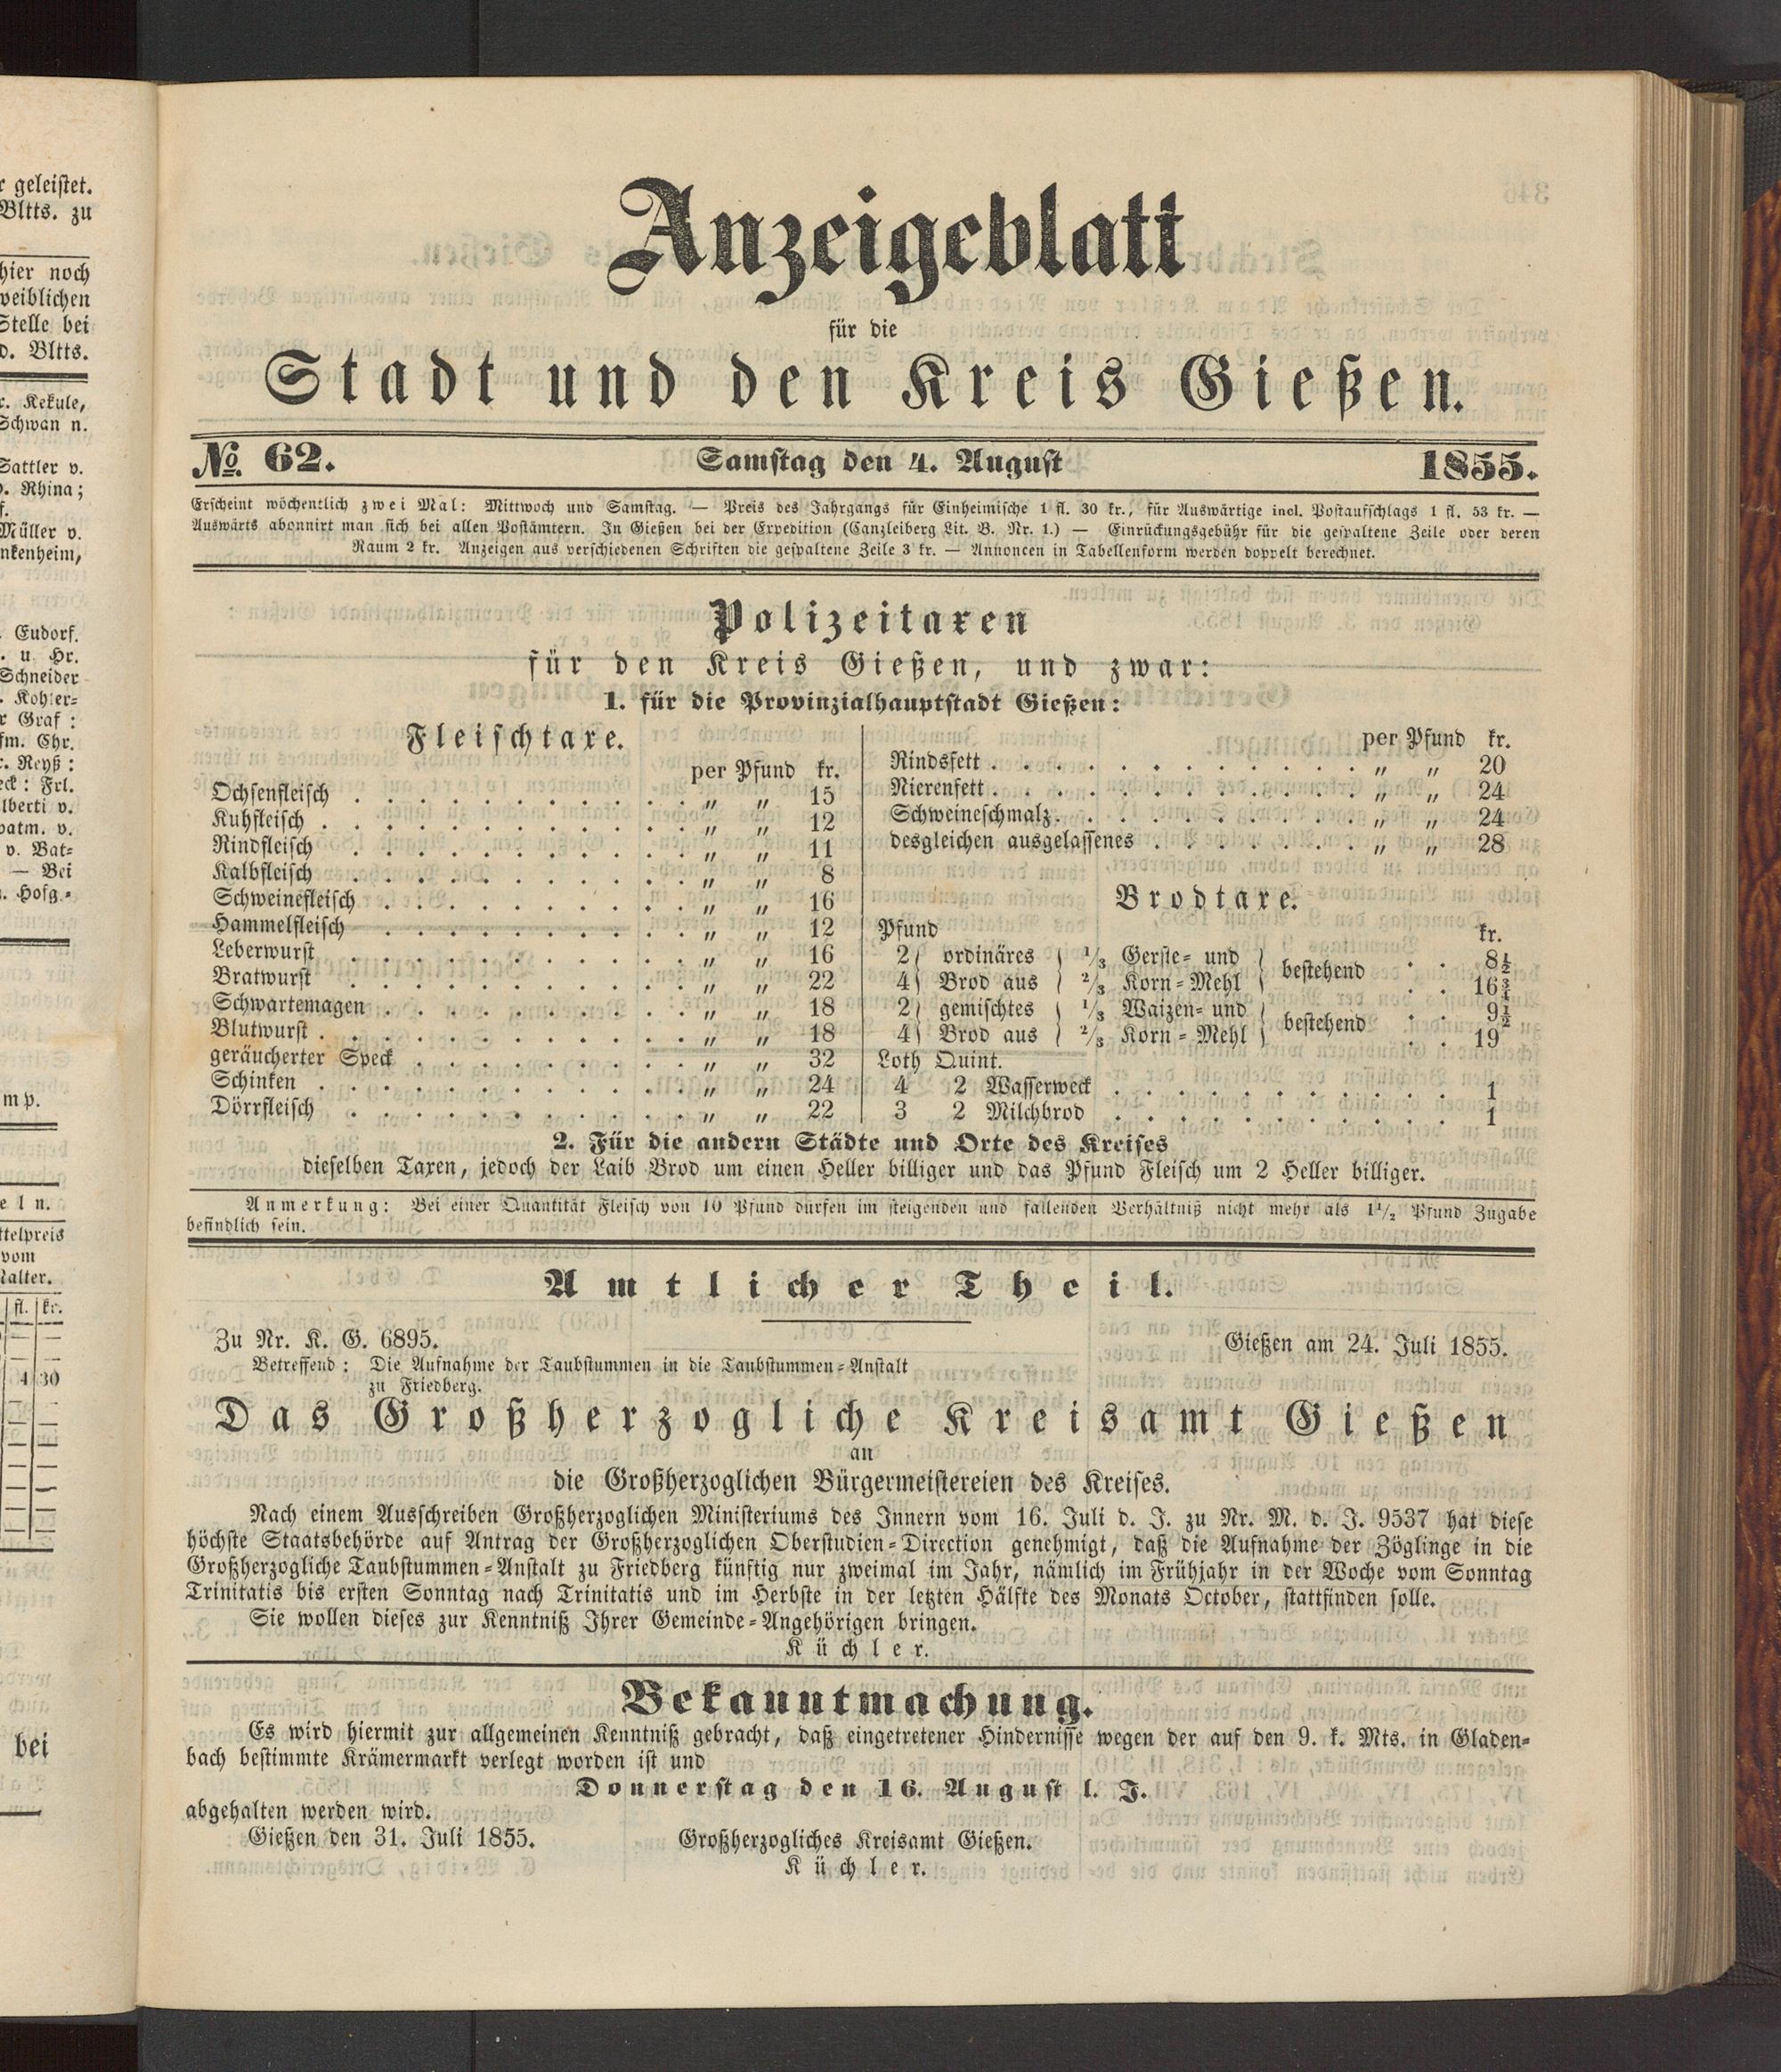 r geleistet.
Bltts. zu
hier noch
weiblichen
Stelle bei
d. Bltts.
r. Kekule,
Schwan n.
Sattler v.
v. Rhina;
f.
Müller v.
nkenheim,
Eudorf.
. u. Hr.
Schneider
. Kohler-
r Graf :
fm. Chr.
r. Reyß :
eck : Frl.
lberti v.
vatm. v.
v. Bat-
— Bei
. Hofg.-
mp.
eln.
ttelpreis
vom
Malter.
fl. kr.
4 30
bei
Anzeigeblatt
für die
Stadt und den Kreis Gießen.
No. 62. Samstag den 4. August 1855.
Erscheint wöchentlich zwei Mal: Mittwoch und Samstag. — Preis des Jahrgangs für Einheimische 1 fl. 30 kr., für Auswärtige incl. Postaufschlags 1 fl. 53 kr. —
Auswärts abonnirt man sich bei allen Postämtern. In Gießen bei der Expedition (Canzleiberg Lit. B. Nr. 1.) — Einrückungsgebühr für die gespaltene Zeile oder deren
Raum 2 kr. Anzeigen aus verschiedenen Schriften die gespaltene Zeile 3 kr. — Annoncen in Tabellenform werden doppelt berechnet.
Polizeitaxen
für den Kreis Gießen, und zwar:
1. für die Provinzialhauptstadt Gießen:
Fleischtaxe.
per Pfund kr.
Ochsenfleisch . . . . . . . . . . . „ „ 15
Kuhfleisch . . . . . . . . . . . . „ „ 12
Rindfleisch . . . . . . . . . . . „ „ 11
Kalbfleisch . . . . . . . . . . . „ „ 8
Schweinefleisch . . . . . . . . . . „ „ 16
Hammelfleisch . . . . . . . . . . „ „ 12
Leberwurst . . . . . . . . . . . „ „ 16
Bratwurst . . . . . . . . . . . . „ „ 22
Schwartemagen . . . . . . . . . . „ „ 18
Blutwurst . . . . . . . . . . . . „ „ 18
geräucherter Speck . . . . . . . . . „ „ 32
Schinken . . . . . . . . . . . . „ „ 24
Dörrfleisch . . . . . . . . . . . „ „ 22
per Pfund kr.
Rindsfett . . . . . . . . . . . . . „ „ 20
Nierenfett . . . . . . . . . . . . . „ „ 24
Schweineschmalz . . . . . . . . . . . „ „ 24
desgleichen ausgelassenes . . . . . . . . „ „ 28
Brodtaxe.
Pfund kr.
2} ordinäres } 1/3 Gerste- und } bestehend . . 8½
4} Brod aus } 2/3 Korn-Mehl } . . 16¾
2} gemischtes } 1/3 Waizen- und } bestehend . . 9½
4} Brod aus } 2/3 Korn-Mehl } . . 19
Loth Quint.
4 2 Wasserweck . . . . . . . . . . . 1
3 2 Milchbrod . . . . . . . . . . . 1
2. Für die andern Städte und Orte des Kreises
dieselben Taxen, jedoch der Laib Brod um einen Heller billiger und das Pfund Fleisch um 2 Heller billiger.
Anmerkung: Bei einer Quantität Fleisch von 10 Pfund dürfen im steigenden und fallenden Verhältniß nicht mehr als 1½ Pfund Zugabe
befindlich sein.
Amtlicher Theil.
Zu Nr. K. G. 6895. Gießen am 24. Juli 1855.
Betreffend: Die Aufnahme der Taubstummen in die Taubstummen-Anstalt
zu Friedberg.
Das Großherzogliche Kreisamt Gießen
an
die Großherzoglichen Bürgermeistereien des Kreises.
Nach einem Ausschreiben Großherzoglichen Ministeriums des Innern vom 16. Juli d. J. zu Nr. M. d. J. 9537 hat diese
höchste Staatsbehörde auf Antrag der Großherzoglichen Oberstudien-Direction genehmigt, daß die Aufnahme der Zöglinge in die
Großherzogliche Taubstummen-Anstalt zu Friedberg künftig nur zweimal im Jahr, nämlich im Frühjahr in der Woche vom Sonntag
Trinitatis bis ersten Sonntag nach Trinitatis und im Herbste in der letzten Hälfte des Monats October, stattfinden solle.
Sie wollen dieses zur Kenntniß Ihrer Gemeinde-Angehörigen bringen.
Küchler.
Bekanntmachung.
Es wird hiermit zur allgemeinen Kenntniß gebracht, daß eingetretener Hindernisse wegen der auf den 9. k. Mts. in Gladen-
bach bestimmte Krämermarkt verlegt worden ist und
Donnerstag den 16. August l. J.
abgehalten werden wird.
Gießen den 31. Juli 1855. Großherzogliches Kreisamt Gießen.
Küchler.